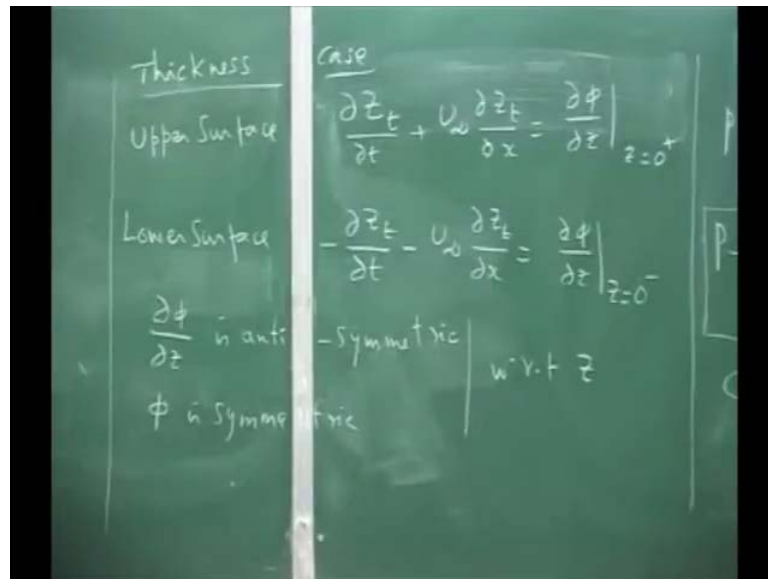 Thickness case
Upper Surface ∂Z_t/∂t + U_∞ ∂Z_t/∂x = ∂φ/∂z |_{z=0^+}
Lower Surface - ∂Z_t/∂t - U_∞ ∂Z_t/∂x = ∂φ/∂z |_{z=0^-}
∂φ/∂z is anti-symmetric
φ is symmetric | w.r.t z
P
P-